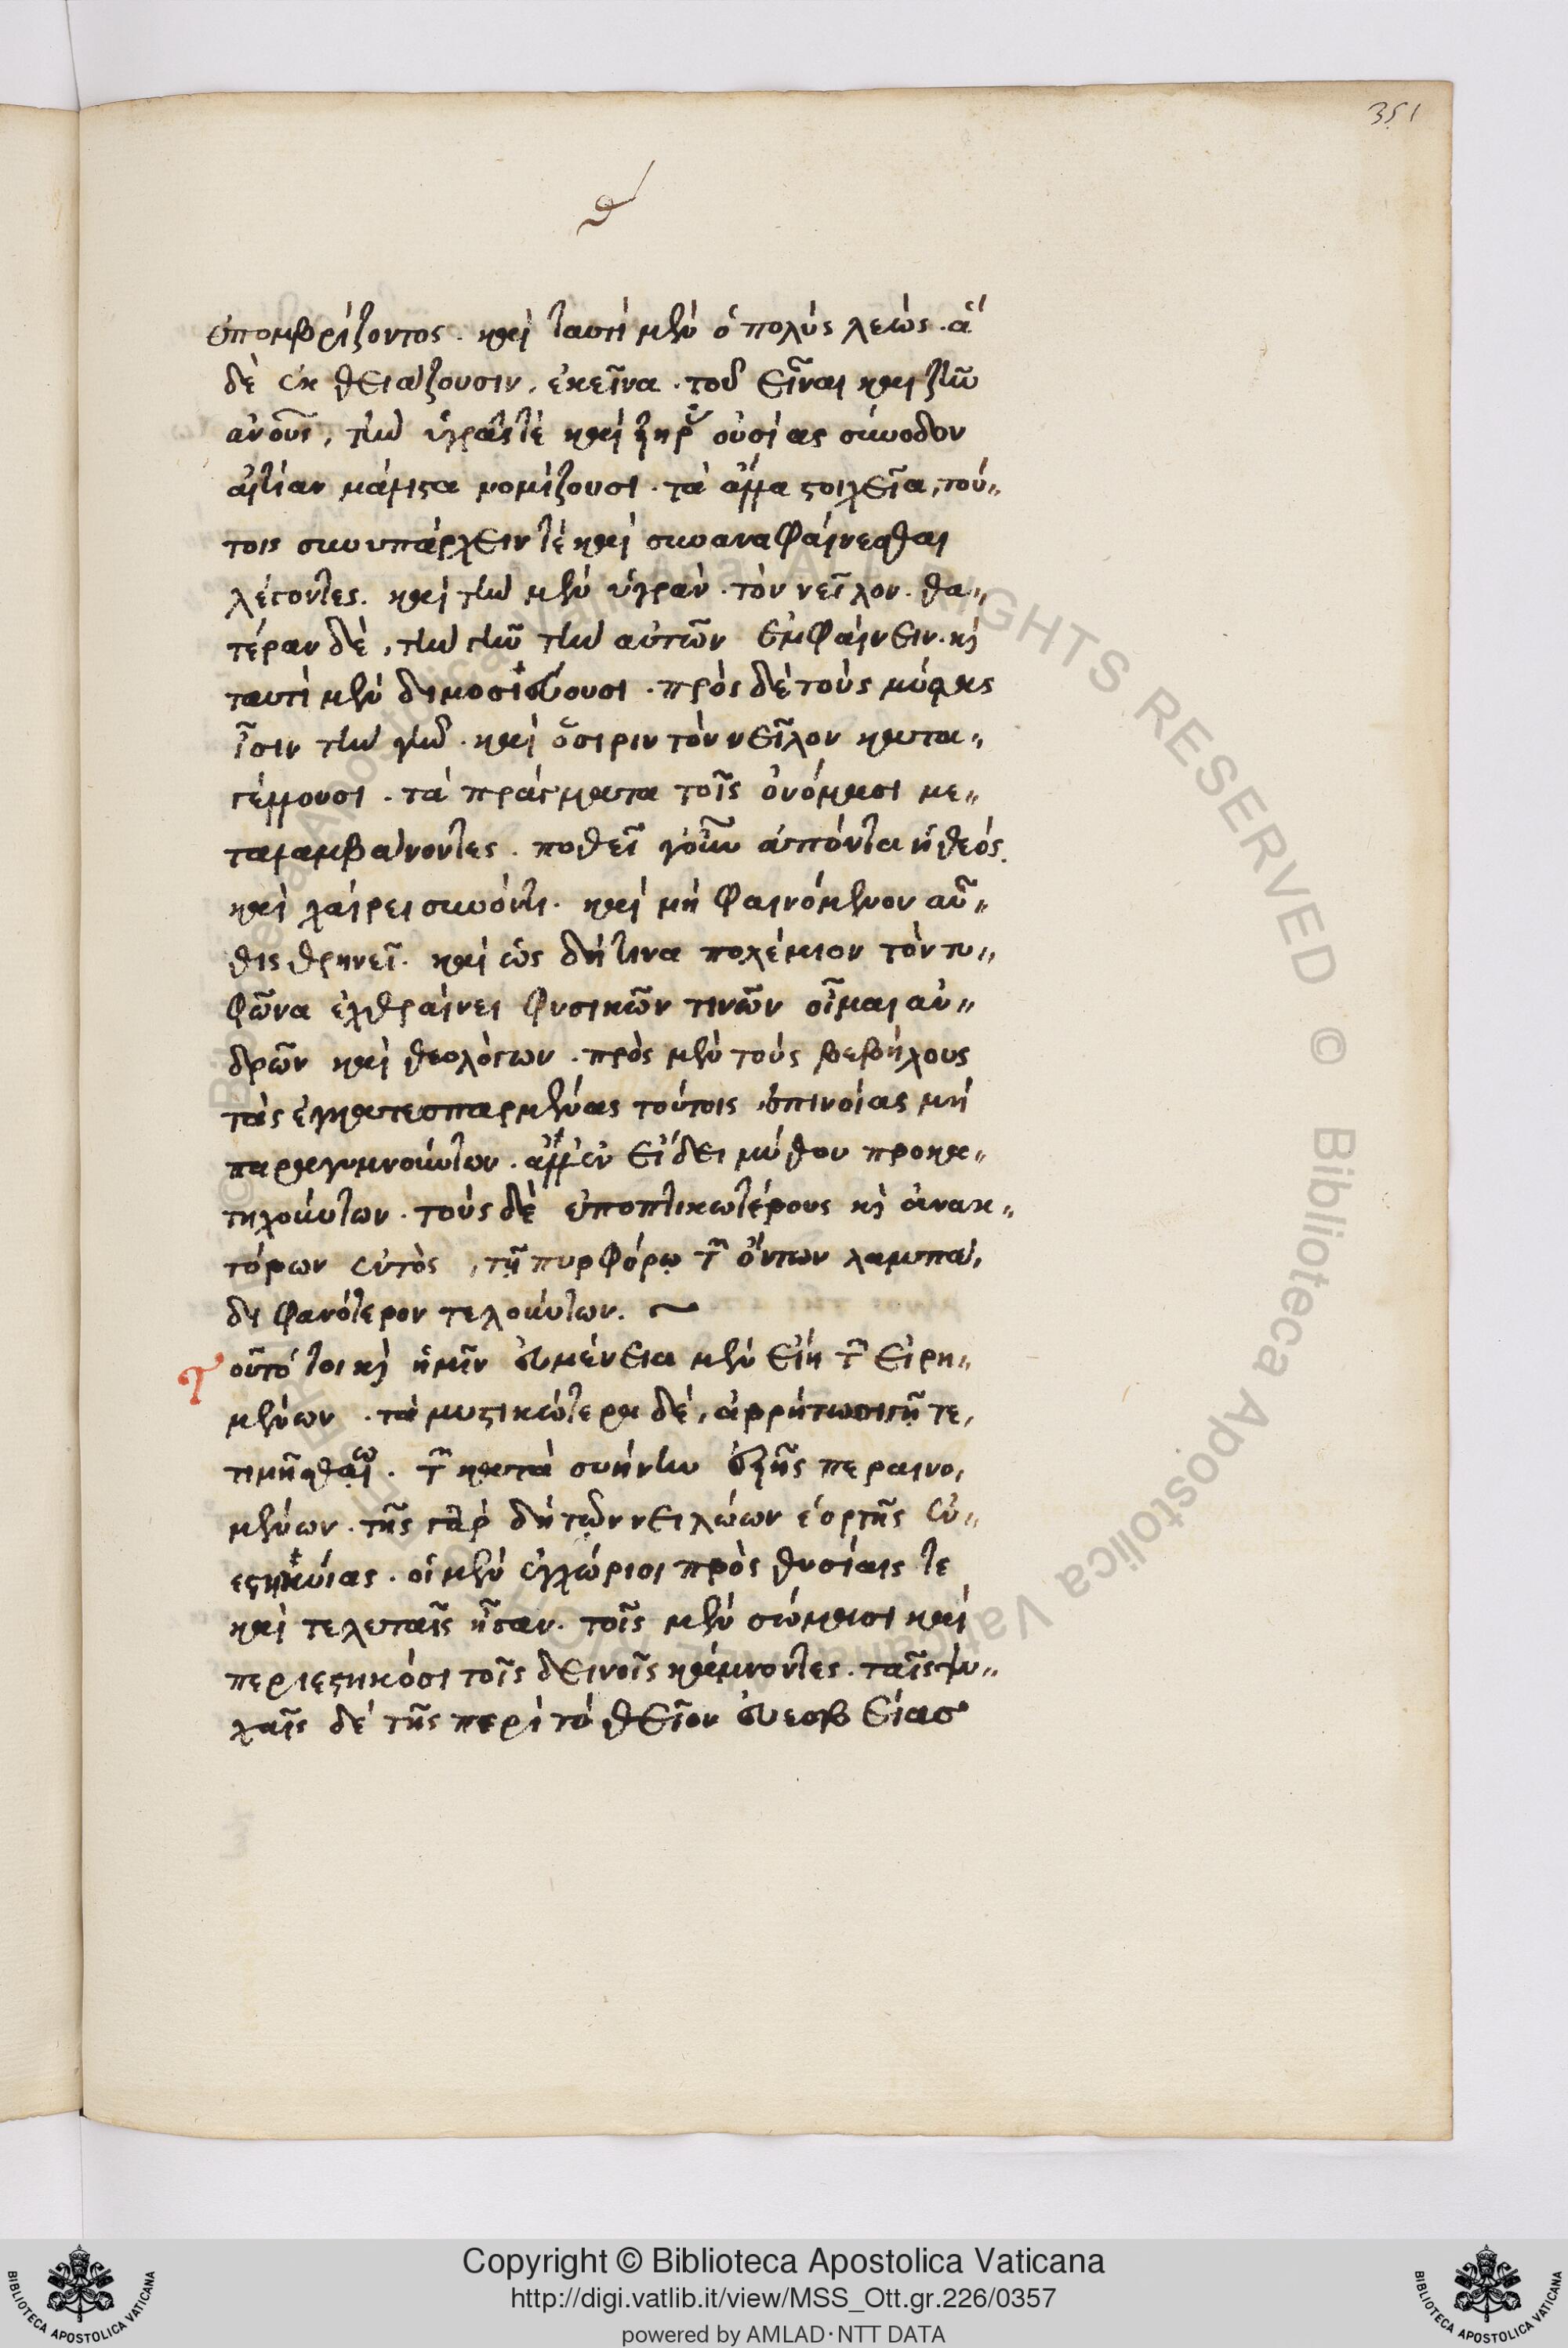 351
θ
ἐπομβρίζοντος. καὶ ταυτὶ μὲν ὁ πολὺς λεώς. ἃ
δὲ ἐκθειάζουσιν, ἐκεῖνα. τοῦ εἶναι καὶ ζῆν
ἀνους, τὴν ὑγρᾶς τὲ καὶ ξηρᾶς οὐσίας σύνοδον
αἰτίαν μάλιστα νομίζουσι. τὰ ἄλλα στοιχεῖα, τού„
τοις συνυπάρχειν τὲ καὶ συναναφαίνεσθαι
λέγοντες. καὶ τὴν μὲν ὑγρὰν. τὸν νεῖλον. θα„
τέραν δὲ, τὴν γῆν τὴν αὐτῶν ἐμφαίνειν. κὶ
ταυτὶ μὲν δημοσιεύουσι. πρὸς δὲ τοὺς μύστας
ἶσιν τὴν γῆν. καὶ ὄσιριν τὸν νεῖλον κατα„
γέλλουσι. τὰ πράγματα τοῖς ὀνόμασι με„
ταλαμβάνοντες. ποθεῖ γοῦν ἀπόντα ἡ θεός.
καὶ χαίρει συνόντι. καὶ μὴ φαινόμενον αὖ„
θις θρηνεῖ. καὶ ὡς δή τινα πολέμιον τὸν τυ„
φῶνα ἐχθραίνει φυσικῶν τινῶν οἶμαι ἀν„
δρῶν καὶ θεολόγων. πρὸς μὲν τοὺς βεβήλους
τὰς ἐγκατεσπαρμένας τούτοις ἐπινοίας μὴ
παραγυμνούντων. ἀλλ' ἐν εἴδει μύθου προκα„
τηχούντων. τοὺς δὲ ἐποπτικωτέρους κὶ ἀνακ„
τόρων ἐντὸς, τῇ πυρφόρῳ τῶν ὄντων λαμπά„
δι φανότερον τελούντων.
τοῦτό τοι κὶ ἡμῖν εὐμένεια μὲν εἴη τῶν εἰρη„
μένων. τὰ μυστικώτερα δὲ, ἀρρήτῳ σιγῇ τε„
τιμήσθω. τῶν κατὰ συήνην ἑξῆς περαινο„
μένων. τῆς γὰρ δὴ τῶν νειλώων ἑορτῆς ἐν„
εστηκυίας. οἱ μὲν ἐγχώριοι πρὸς θυσίαις τε
καὶ τελεταῖς ἦσαν. τοῖς μὲν σώμασι καὶ
περιεστηκόσι τοῖς δεινοῖς κάμνοντες. ταῖς ψυ„
χαῖς δὲ τῆς περὶ τὸ θεῖον εὐσεβείας
Copyright © Biblioteca Apostolica Vaticana
http://digi.vatlib.it/view/MSS_Ott.gr.226/0357
powered by AMLAD·NTT DATA